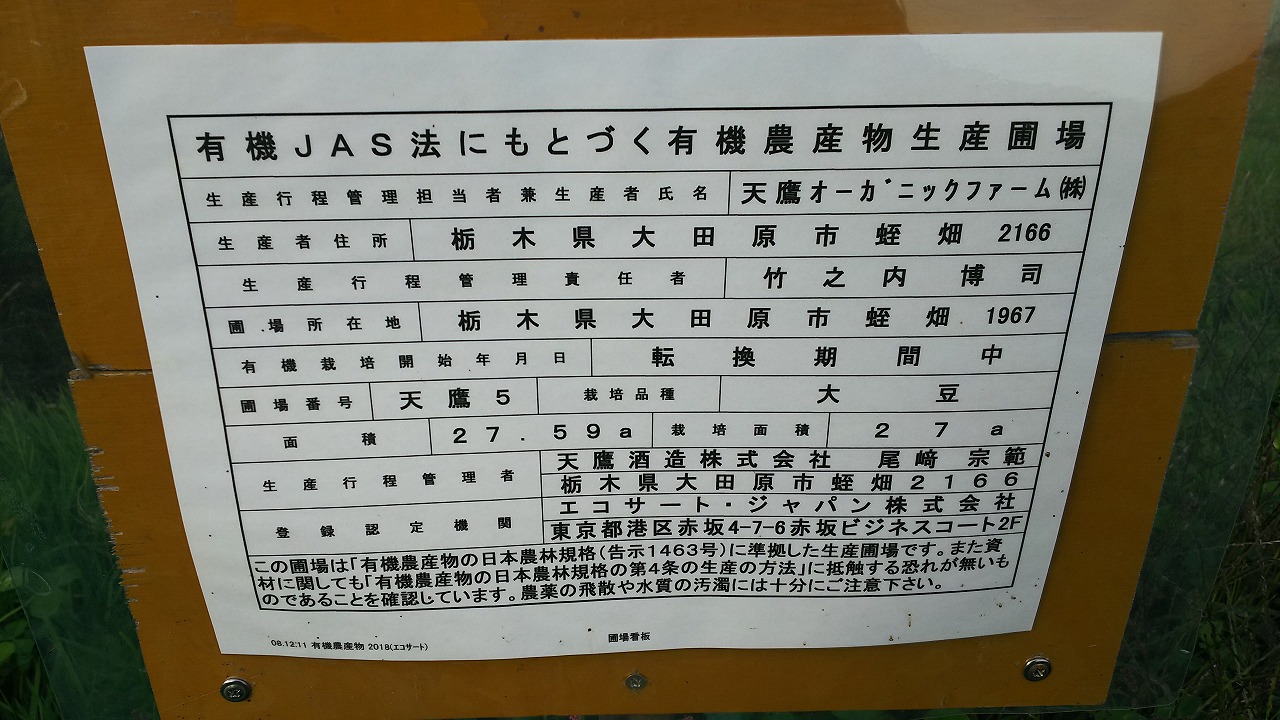 有機JAS法にもとづく有機農産物生産圃場
生産行程管理担当者兼生産者氏名 天鷹オーガニックファーム㈱
生産者住所 栃木県大田原市蛭畑 2166
生産行程管理責任者 竹之内 博司
圃場所在地 栃木県大田原市蛭畑 1967
有機栽培開始年月日 転換期間中
圃場番号 天鷹5 栽培品種 大豆
面積 27.59a 栽培面積 27a
生産行程管理者 天鷹酒造株式会社 尾﨑 宗範
栃木県大田原市蛭畑2166
登録認定機関 エコサート・ジャパン株式会社
東京都港区赤坂4-7-6赤坂ビジネスコート2F
この圃場は「有機農産物の日本農林規格(告示1463号)に準拠した生産圃場です。また資
材に関しても「有機農産物の日本農林規格の第4条の生産の方法」に抵触する恐れが無いも
のであることを確認しています。農薬の飛散や水質の汚濁には十分にご注意下さい。
08.12.11 有機農産物 2018(エコサート) 圃場看板